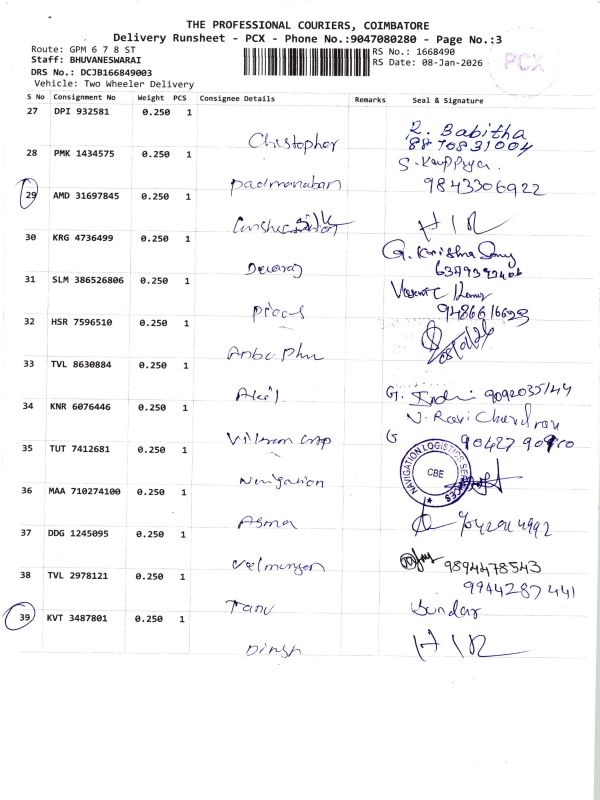 THE PROFESSIONAL COURIERS, COIMBATORE
Delivery Runsheet - PCX - Phone No.:9047080280 - Page No.:3
Route: GPM 6 7 8 ST
RS No.: 1668490
Staff: BHUVANESWARAI
RS Date: 08-Jan-2026
DRS No.: DCJB166849003
Vehicle: Two Wheeler Delivery
PCX
S No Consignment No Weight PCS Consignee Details Remarks Seal & Signature
27 DPI 932581 0.250 1
Chistopher R. Babitha
8870831004
28 PMK 1434575 0.250 1
Padmanaban 9843306922
29 AMD 31697845 0.250 1
silk H/R
30 KRG 4736499 0.250 1
Devaraj G. Krishna
31 SLM 386526806 0.250 1
32 HSR 7596510 0.250 1
33 TVL 8630884 0.250 1
Akil G. 9092035144
34 KNR 6076446 0.250 1
N. Ravi Chandran
Vikram
35 TUT 7412681 0.250 1
Navigation
NAVIGATION LOGISTICS SERVICES
CBE
36 MAA 710274100 0.250 1
Asma
37 DDG 1245095 0.250 1
Velmurugan 9894478543
38 TVL 2978121 0.250 1
9944287441
Tanu Sundar
39 KVT 3487801 0.250 1
Dinesh H/R